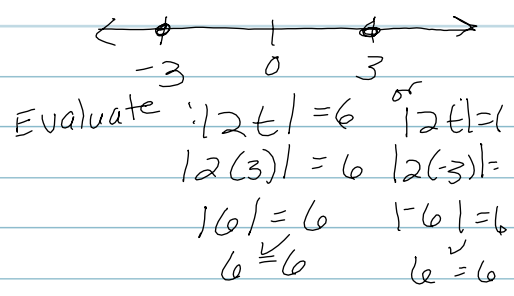 -3 0 3
Evaluate : |2t| = 6 or |2t| = (
|2(3)| = 6 |2(-3)| =
|6| = 6 |-6| = 6
6 = 6 ✓ 6 = 6 ✓